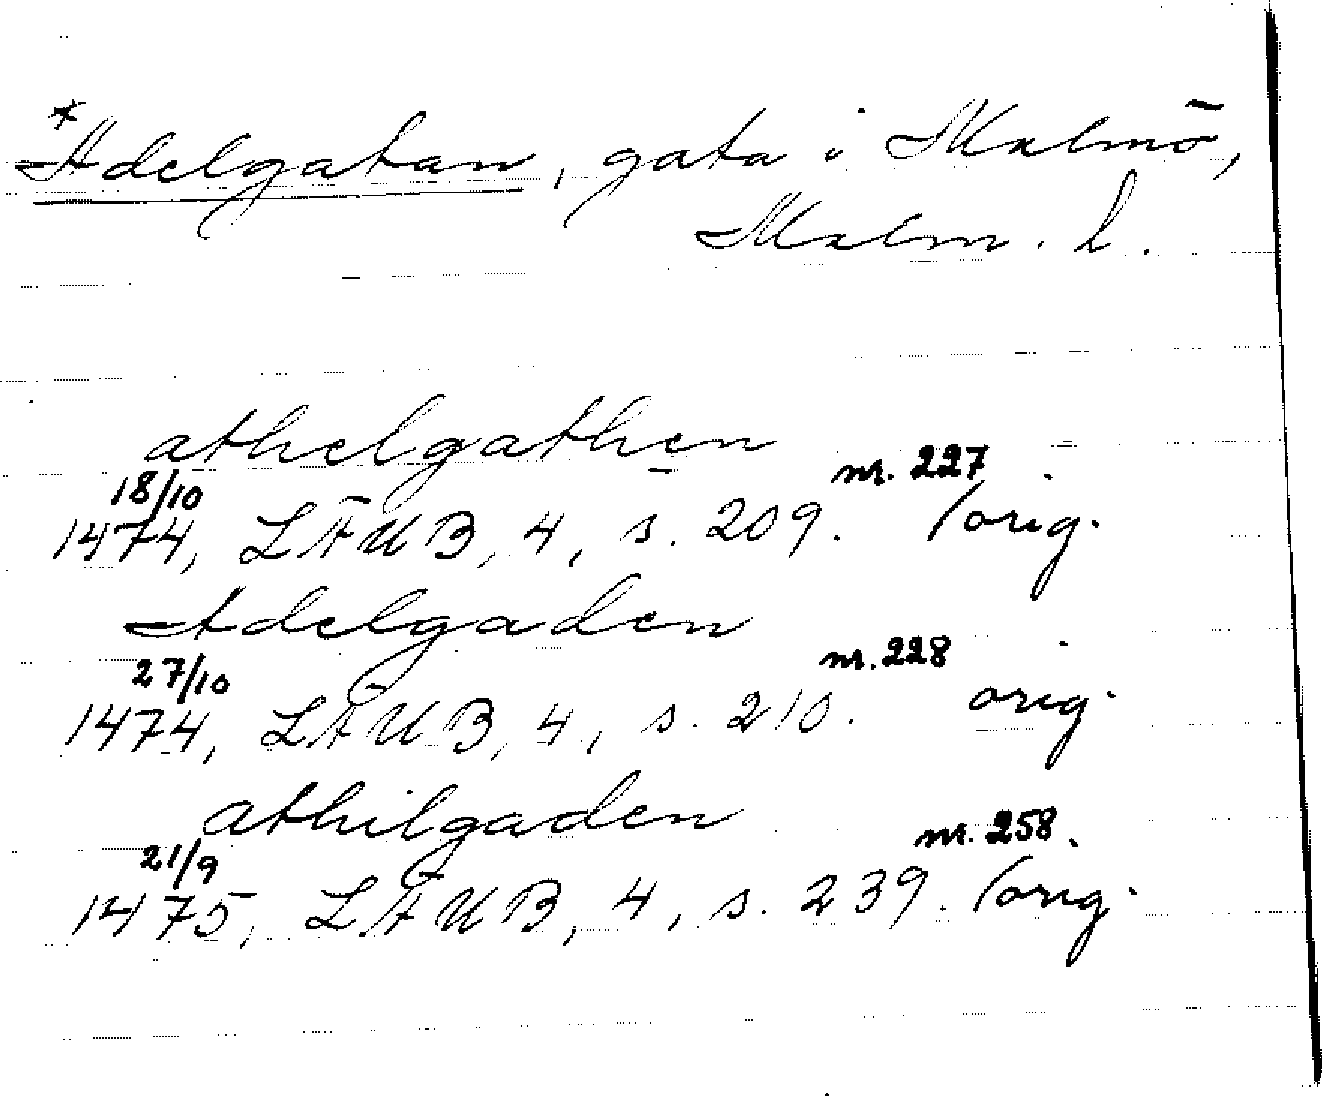 *Adelgatan, gata i Malmö,
Malm. l.
athelgathen
18/10 nr. 227
1474, LÄUB, 4, s. 209. /orig.
Adelgaden
27/10 nr. 228
1474, LÄUB, 4, s. 210. orig.
athilgaden
21/9 nr. 258.
1475, LÄUB, 4, s. 239. /orig.